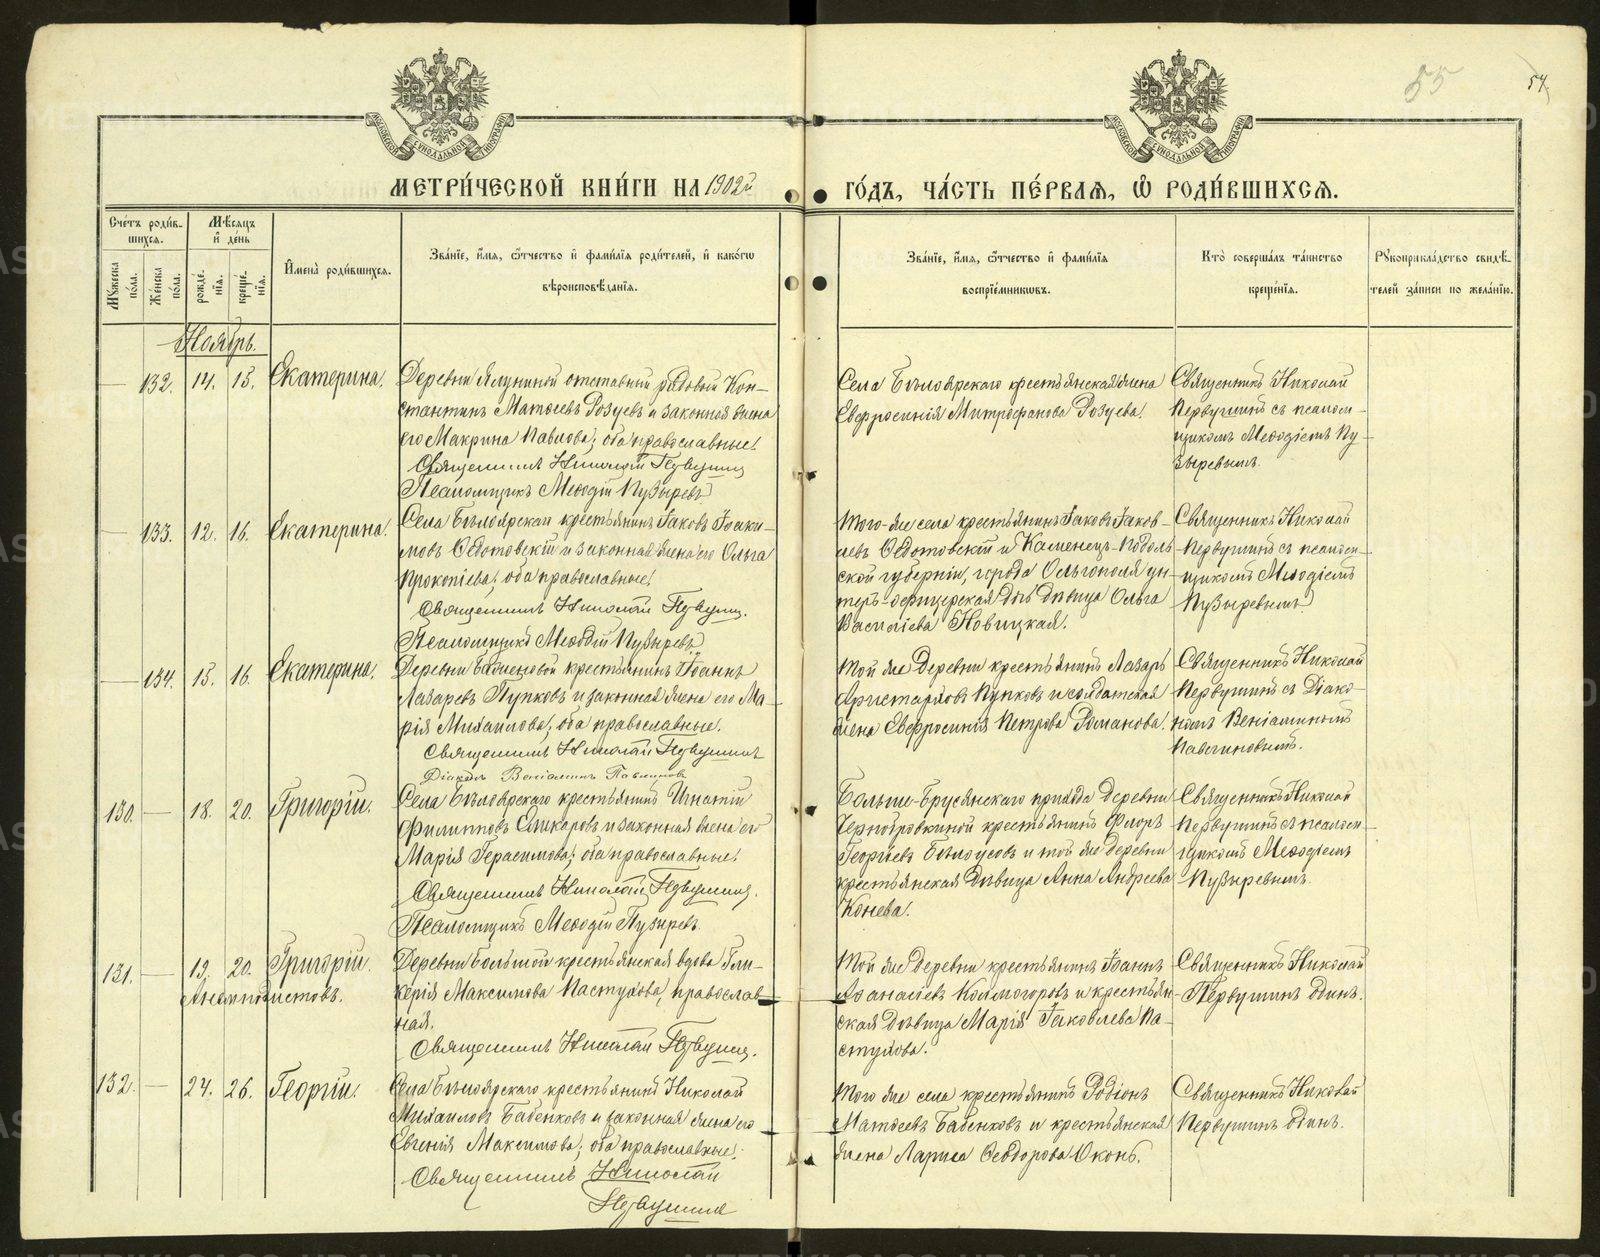 55
54
МОСКОВСКОЙ СѴНОДАЛЬНОЙ ТИПОГРАФІИ
МОСКОВСКОЙ СѴНОДАЛЬНОЙ ТИПОГРАФІИ
МЕТРИ́ЧЕСКОЙ КНИ́ГИ НА 1902й
ГО́ДЪ, ЧА́СТЬ ПЕ́РВАѦ, Ѡ҆ РОДИ́ВШИХСѦ.
Сче́тъ роди́в-
шихсѧ.
Мꙋ́жеска по́ла.
Же́нска по́ла.
Мѣ́сѧцъ
и҆ де́нь
рожде́нїѧ.
креще́нїѧ.
И҆мена̀ роди́вшихсѧ.
Зва́нїе, и҆́мѧ, ѻ҆́тчество и҆ фами́лїѧ роди́телей, и҆ како́гѡ
вѣроисповѣ́данїѧ.
Зва́нїе, и҆́мѧ, ѻ҆́тчество и҆ фами́лїѧ
воспрїе́мникѡвъ.
Кто̀ соверша́лъ та́инство
креще́нїѧ.
Рꙋкоприкла́дство свидѣ́-
телей за́писи по жела́нїю.
Ноябрь.
— 132. 14. 15. Екатерина.
Деревни Ялуниной отставный рядовой Кон-
стантинъ Матѳеевъ Розуевъ и законная жена
его Макрина Павлова; оба православные.
Священникъ Николай Первушинъ
Псаломщикъ Меѳодій Пузыревъ
Села Бѣлоярскаго крестьянская жена
Евфросинія Митрофанова Розуева.
Священникъ Николай
Первушинъ съ псалом-
щикомъ Меѳодіемъ Пу-
зыревымъ.
— 133. 12. 16. Екатерина.
Села Бѣлоярскаго крестьянинъ Іаковъ Іоаки-
мовъ Ѳедотовскій и законная жена его Ольга
Прокопіева; оба православные.
Священникъ Николай Первушин.
Псаломщикъ Меѳодій Пузыревъ
Того-же села крестьянинъ Іаковъ Іаков-
левъ Ѳедотовскій и Каменецъ-Подоль-
ской губерніи, города Ольгополя ун-
теръ-офицерская дочь дѣвица Ольга
Василіева Новицкая.
Священникъ Николай
Первушинъ съ псалом-
щикомъ Меѳодіемъ
Пузыревымъ
— 134. 15. 16. Екатерина.
Деревни крестьянинъ Іоаннъ
Лазаревъ Пупковъ и законная жена его Ма-
рія Михаилова; оба православные.
Священникъ Николай Первушинъ
Діаконъ Веніаминъ Павлиновъ
Той же деревни крестьянинъ Лазарь
Аристарховъ Пупковъ и солдатская
жена Евфросинія Петрова Романова.
Священникъ Николай
Первушинъ съ діако-
номъ Веніаминомъ
Павлиновымъ.
130. — 18. 20. Григорій.
Села Бѣлоярскаго крестьянинъ Игнатій
Филипповъ и законная жена его
Марія Герасимова; оба православные.
Священникъ Николай Первушин.
Псаломщикъ Меѳодій Пузыревъ.
Больше-Брусянскаго прихода деревни
Чернобровкиной крестьянинъ Флоръ
Георгіевъ Бѣлоусовъ и той же деревни
крестьянская дѣвица Анна Андреева
Конева.
Священникъ Николай
Первушинъ съ псалом-
щикомъ Меѳодіемъ
Пузыревымъ.
131. — 19. 20. Григорій.
Анемподистовъ.
Деревни Большой крестьянская вдова Гли-
керія Максимова Пастухова, православ-
ная.
Священникъ Николай Первушин.
Той же деревни крестьянинъ Іоаннъ
Аѳанасіевъ Колмогоровъ и крестьян-
ская дѣвица Марія Іаковлева Па-
стухова.
Священникъ Николай
Первушинъ одинъ.
132. — 24. 26. Георгій.
Села Бѣлоярскаго крестьянинъ Николай
Михаиловъ Бабенковъ и законная жена его
Евгенія Максимова; оба православные.
Священникъ Николай
Первушин
Того же села крестьянинъ Родіонъ
Матѳеевъ Бабенковъ и крестьянская
жена Лариса Ѳеодорова Оконь.
Священникъ Николай
Первушинъ одинъ.